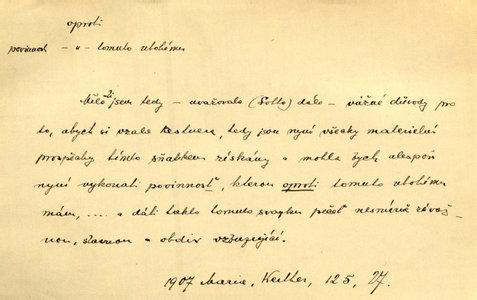 oproti
povinnost – „ – tomuto ubohému
Měla-li jsem tedy – uvažovala (Sotto) dále – vážné důvody pro
to, abych si vzala Kestnera, tedy jsou nyní všecky materielní
prospěchy tímto sňatkem získány a mohla bych alespoň
nyní vykonati povinnost, kterou oproti tomuto ubohému
mám, .... a dáti takto tomuto svazku pečeť nesmírně závaž-
nou, slavnou a obdiv vzbuzující.
1907 Maria, Werther, 125, 27.